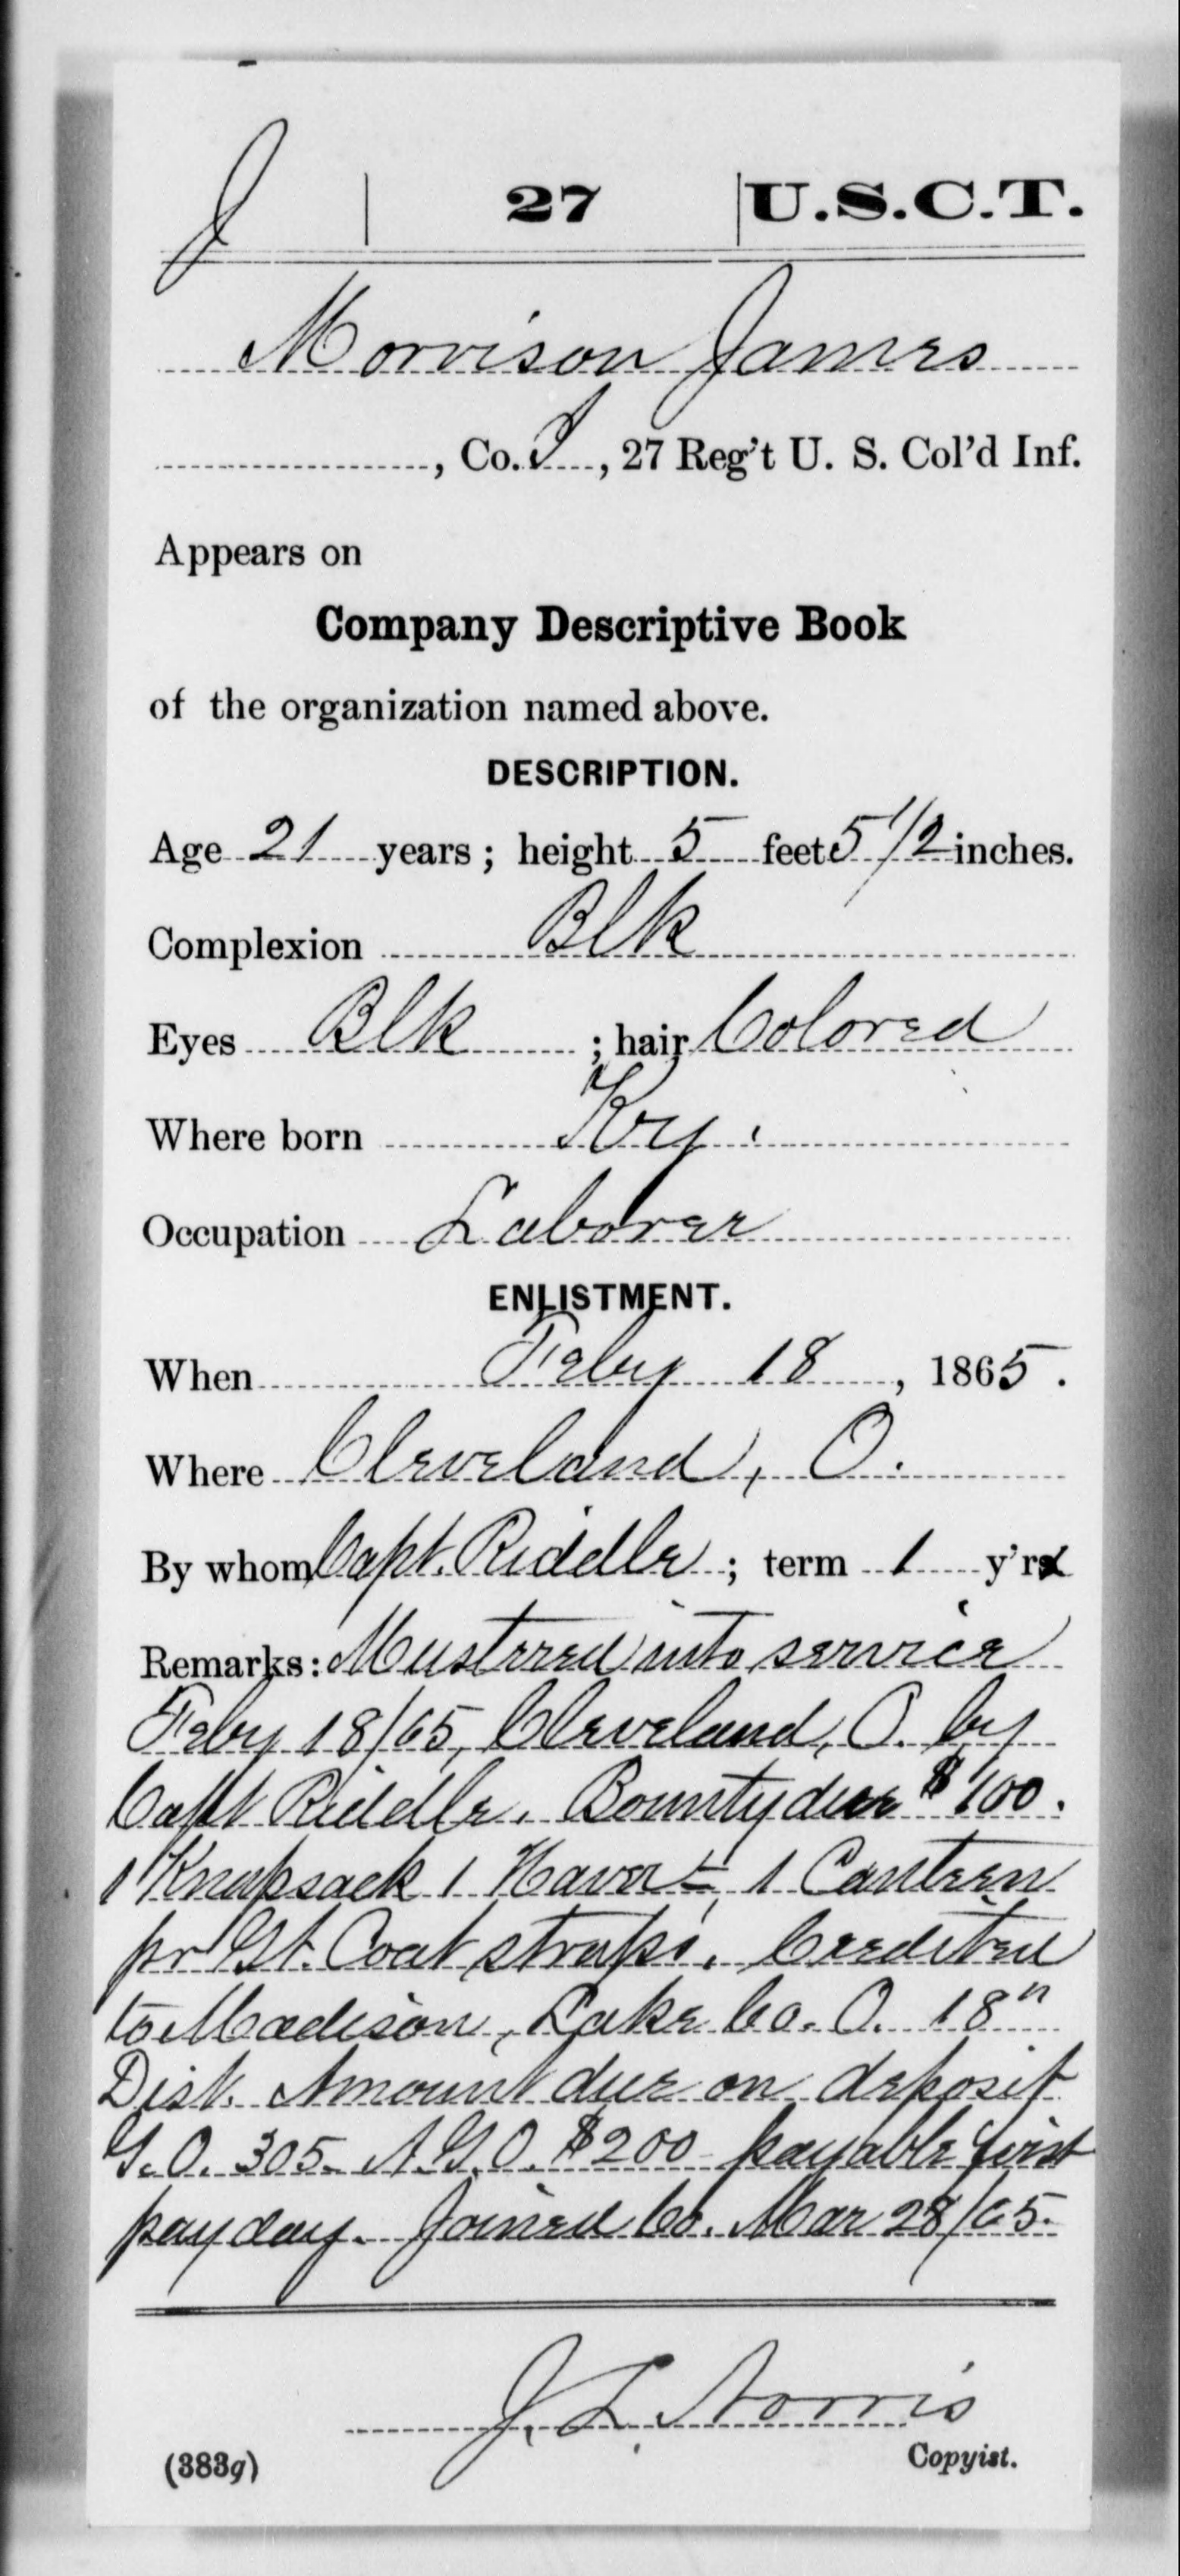 J | 27 | U.S.C.T.
Morrison James
, Co. I, 27 Reg't U. S. Col'd Inf.
Appears on
Company Descriptive Book
of the organization named above.
DESCRIPTION.
Age 21 years; height 5 feet 5 1/2 inches.
Complexion Blk
Eyes Blk ; hair Colored
Where born Ky.
Occupation Laborer
ENLISTMENT.
When Feby 18, 1865.
Where Cleveland, O.
By whom Capt. Riddle; term 1 y'rs
Remarks: Mustered into service
Feby 18/65, Cleveland, O. by
Capt Riddle. Bounty due $100.
1 Knapsack 1 Haver 1 Canteen
pr Gt. Coat straps. Credited
to Madison, Lake Co. O. 18"
Dist. Amount due on deposit
G. O. 305. A.G.O. $200 payable first
pay day. Joined Co. Mar 28/65.
J. L. Norris
Copyist.
(383g)